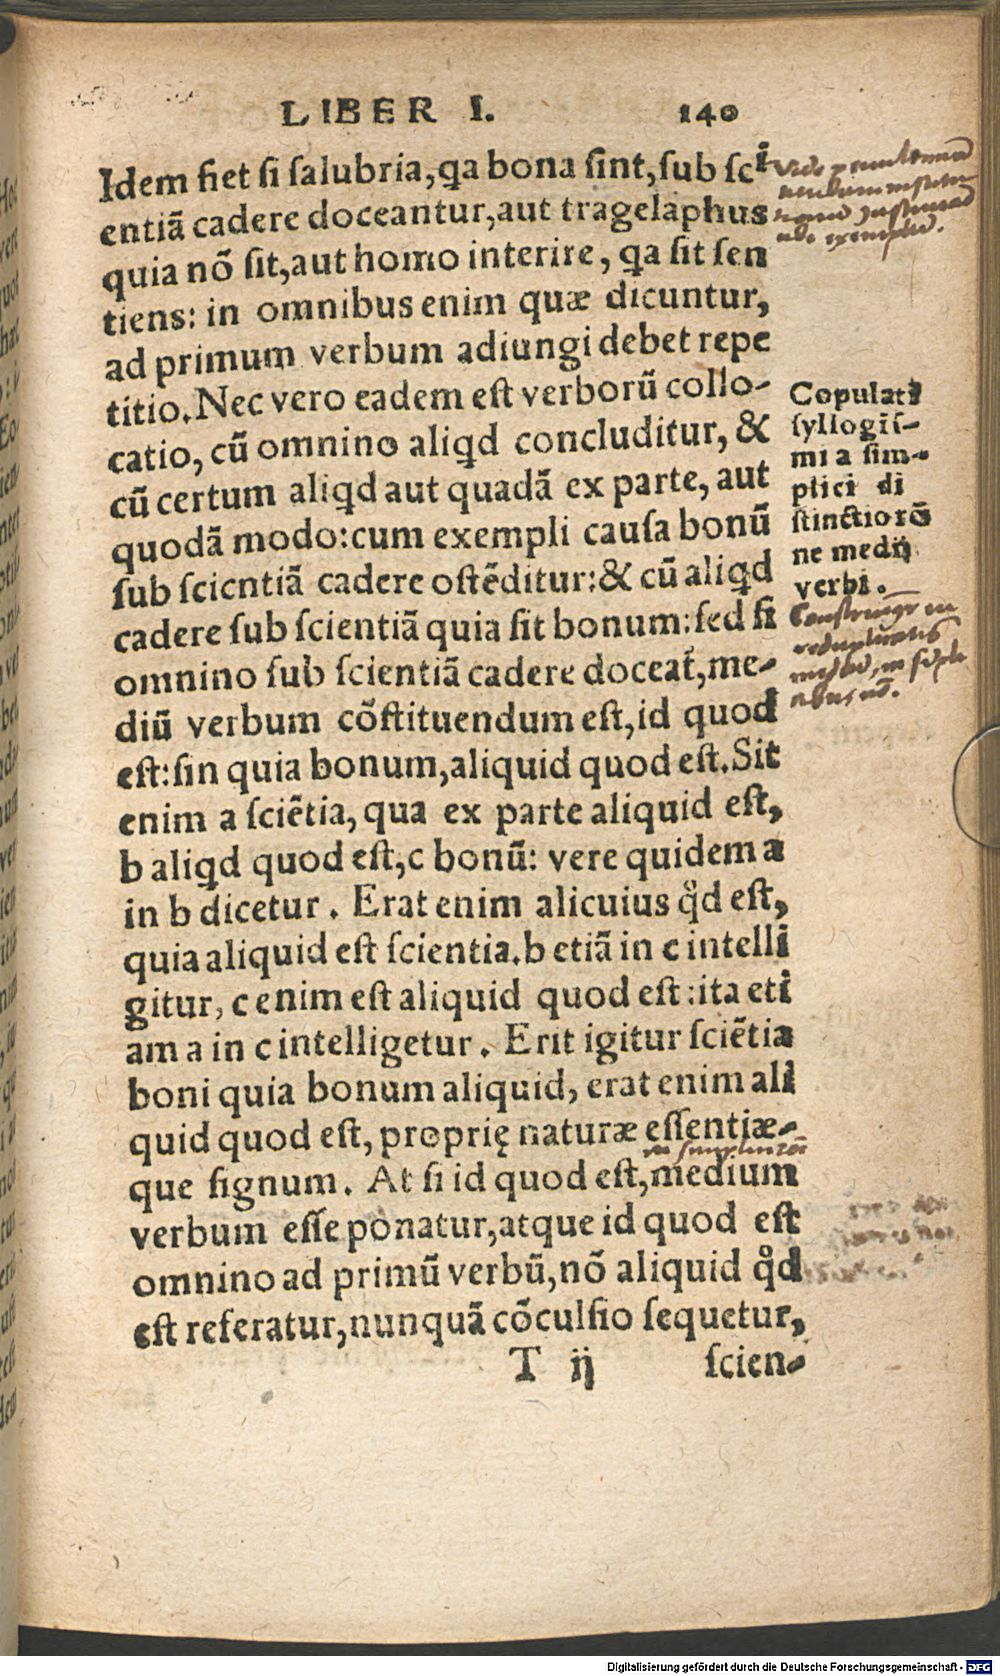 LIBER I. 140
Idem fiet si salubria, qa bona sint, sub sci
entiã cadere doceantur, aut tragelaphus
quia nõ sit, aut homo interire, qa sit sen
tiens: in omnibus enim quæ dicuntur,
ad primum verbum adiungi debet repe
titio. Nec vero eadem est verborũ collo-
catio, cũ omnino aliqd concluditur, &
cũ certum aliqd aut quadã ex parte, aut
quodã modo: cum exempli causa bonũ
sub scientiã cadere ostẽditur: & cũ aliqd
cadere sub scientiã quia sit bonum: sed si
omnino sub scientiã cadere doceat, me-
diũ verbum cõstituendum est, id quod
est: sin quia bonum, aliquid quod est. Sit
enim a sciẽtia, qua ex parte aliquid est,
b aliqd quod est, c bonũ: vere quidem a
in b dicetur. Erat enim alicuius qd est,
quia aliquid est scientia. b etiã in c intelli
gitur, c enim est aliquid quod est: ita eti
am a in c intelligetur. Erit igitur sciẽtia
boni quia bonum aliquid, erat enim ali
quid quod est, proprię naturæ essentiæ-
que signum. At si id quod est, medium
verbum esse ponatur, atque id quod est
omnino ad primũ verbũ, nõ aliquid qd
est referatur, nunquã cõculsio sequetur,
T ij scien-
Copulati
syllogis-
mi a sim-
plici di
stinctio rõ
ne medij
verbi.